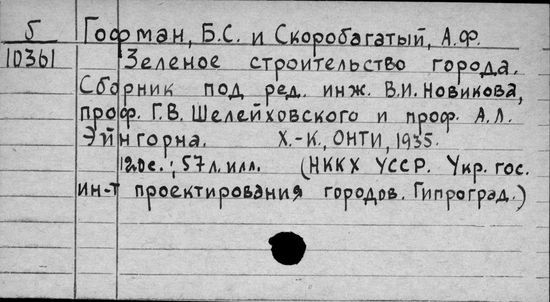 Б Гофман, Б.С. и Скоробагатый, А.Ф.
10361 Зеленое строительство города.
Сборник под ред. инж. В.И. Новикова,
проф. Г.В. Шелейховского и проф. А.Л.
Эйнгорна. Х.-К., ОНТИ, 1935.
120с.; 57л. илл. (НККХ УССР. Укр. гос.
ин-т проектирования городов. Гипроград.)